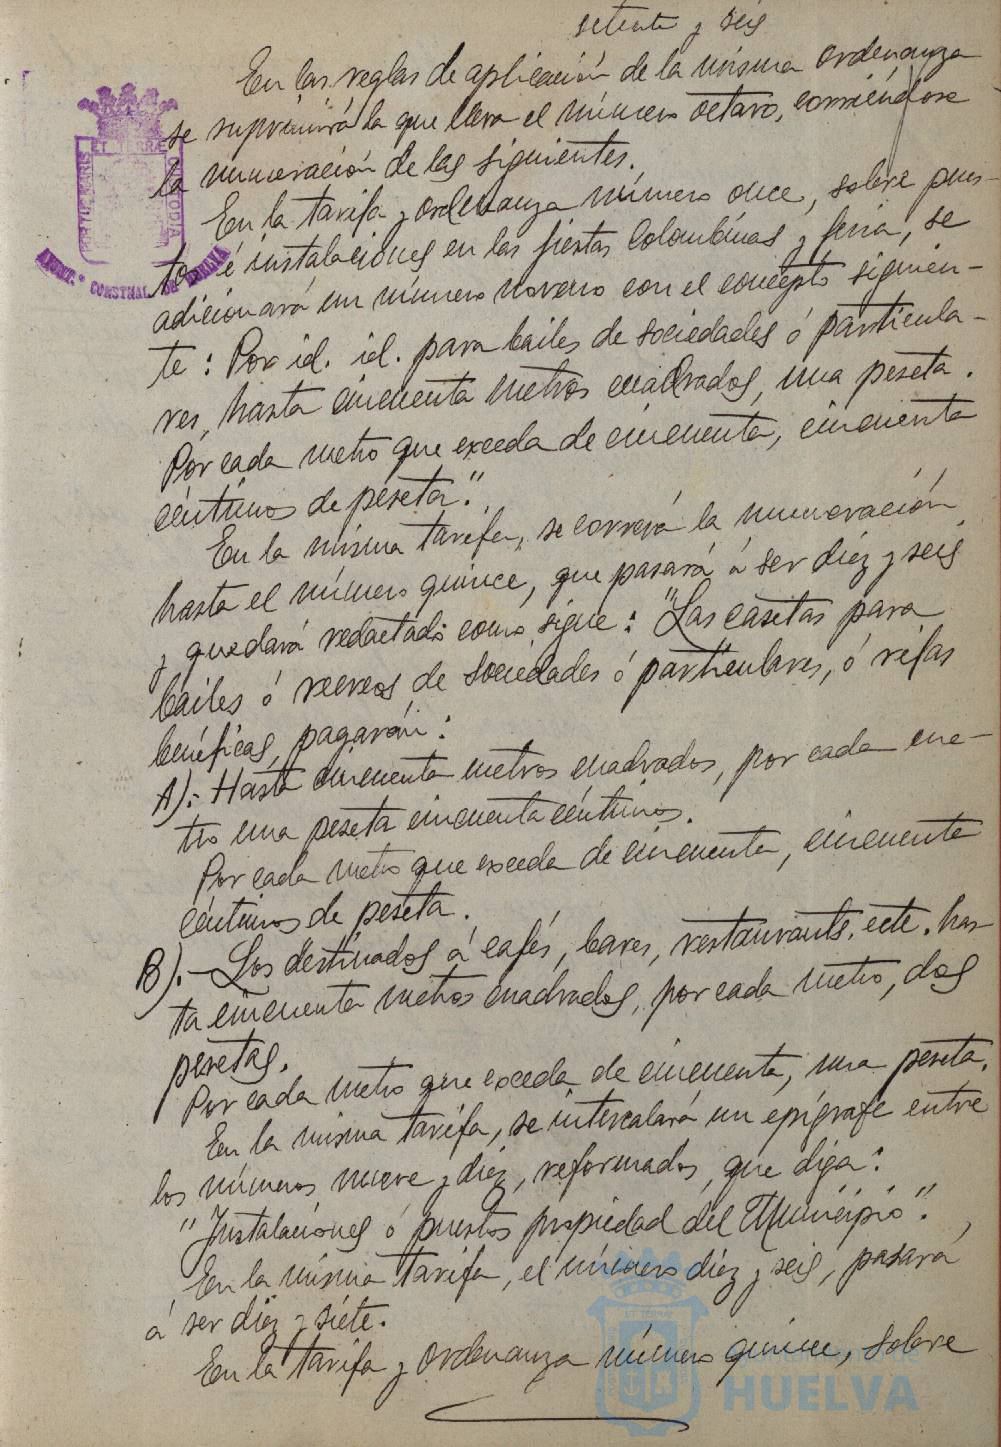 setenta y seis
En las reglas de aplicación de la misma ordenanza
se suprimirá la que lleva el número octavo, corriéndose
la numeración de las siguientes.
En la tarifa y ordenanza número once, sobre pues-
tos é instalaciones en las fiestas Colombinas y feria, se
adicionará un número noveno con el concepto siguien-
te: Por id. id. para bailes de sociedades ó particula-
res, hasta cincuenta metros cuadrados, una peseta.
Por cada metro que exceda de cincuenta, cincuenta
céntimos de peseta".
En la misma tarifa, se correrá la numeración
hasta el número quince, que pasará á ser diez y seis
y quedará redactado como sigue: "Las casetas para
bailes ó recreos de sociedades ó particulares, ó rifas
benéficas, pagarán:
A).- Hasta cincuenta metros cuadrados, por cada me-
tro una peseta cincuenta céntimos.
Por cada metro que exceda de cincuenta, cincuenta
céntimos de peseta.
B).- Los destinados á cafés, bares, restaurants, ecte. has-
ta cincuenta metros cuadrados, por cada metro, dos
pesetas.
Por cada metro que exceda de cincuenta, una peseta.
En la misma tarifa, se intercalará un epígrafe entre
los números nueve y diez, reformados, que diga:
"Instalaciones ó puestos propiedad del Municipio".
En la misma tarifa, el número diez y seis, pasará
á ser diez y siete.
En la tarifa y ordenanza número quince, sobre
PORTUS MARIS ET TERRÆ CUSTODIA
AYUNT.º CONSTNAL. DE HUELVA
HUELVA